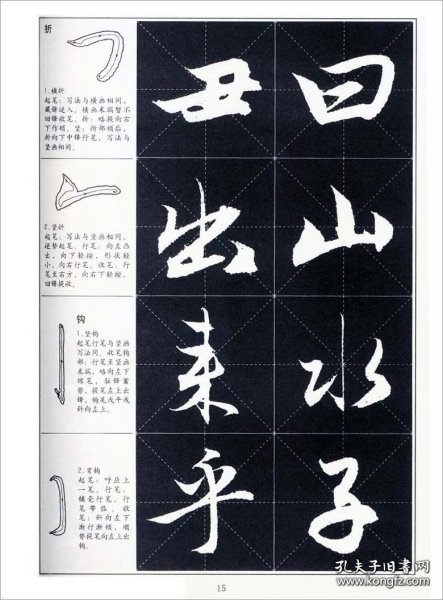 折
1.横折
起笔：写法与横画相同，
藏锋逆入。横画末端暂不
回锋收笔。折：略提向右
下作顿。竖：折部顿后，
折向下中锋行笔，写法与
竖画相同。
丑 曰
2.竖折
起笔：写法与竖画相同，
逆势起笔。行笔：向左凸
出，向下轻按，形状轻
小，向右行笔。收笔：行
笔至右方，向右下轻按，
回锋提收。
出 山
钩
1.竖钩
起笔行笔与竖画
写法同。收笔钩
部：行笔至竖画
末端，略向左下
顿笔，驻锋蓄
势，提笔左上出
锋，钩尾或平或
斜向左上。
来 水
2.弯钩
起笔：呼应上
一笔。行笔：
横毫行笔，行
笔带弧。收
笔：斜向左下
渐行渐顿，顺
势提笔向左上出
钩。
乎 子
15
孔夫子旧书网
www.kongfz.com